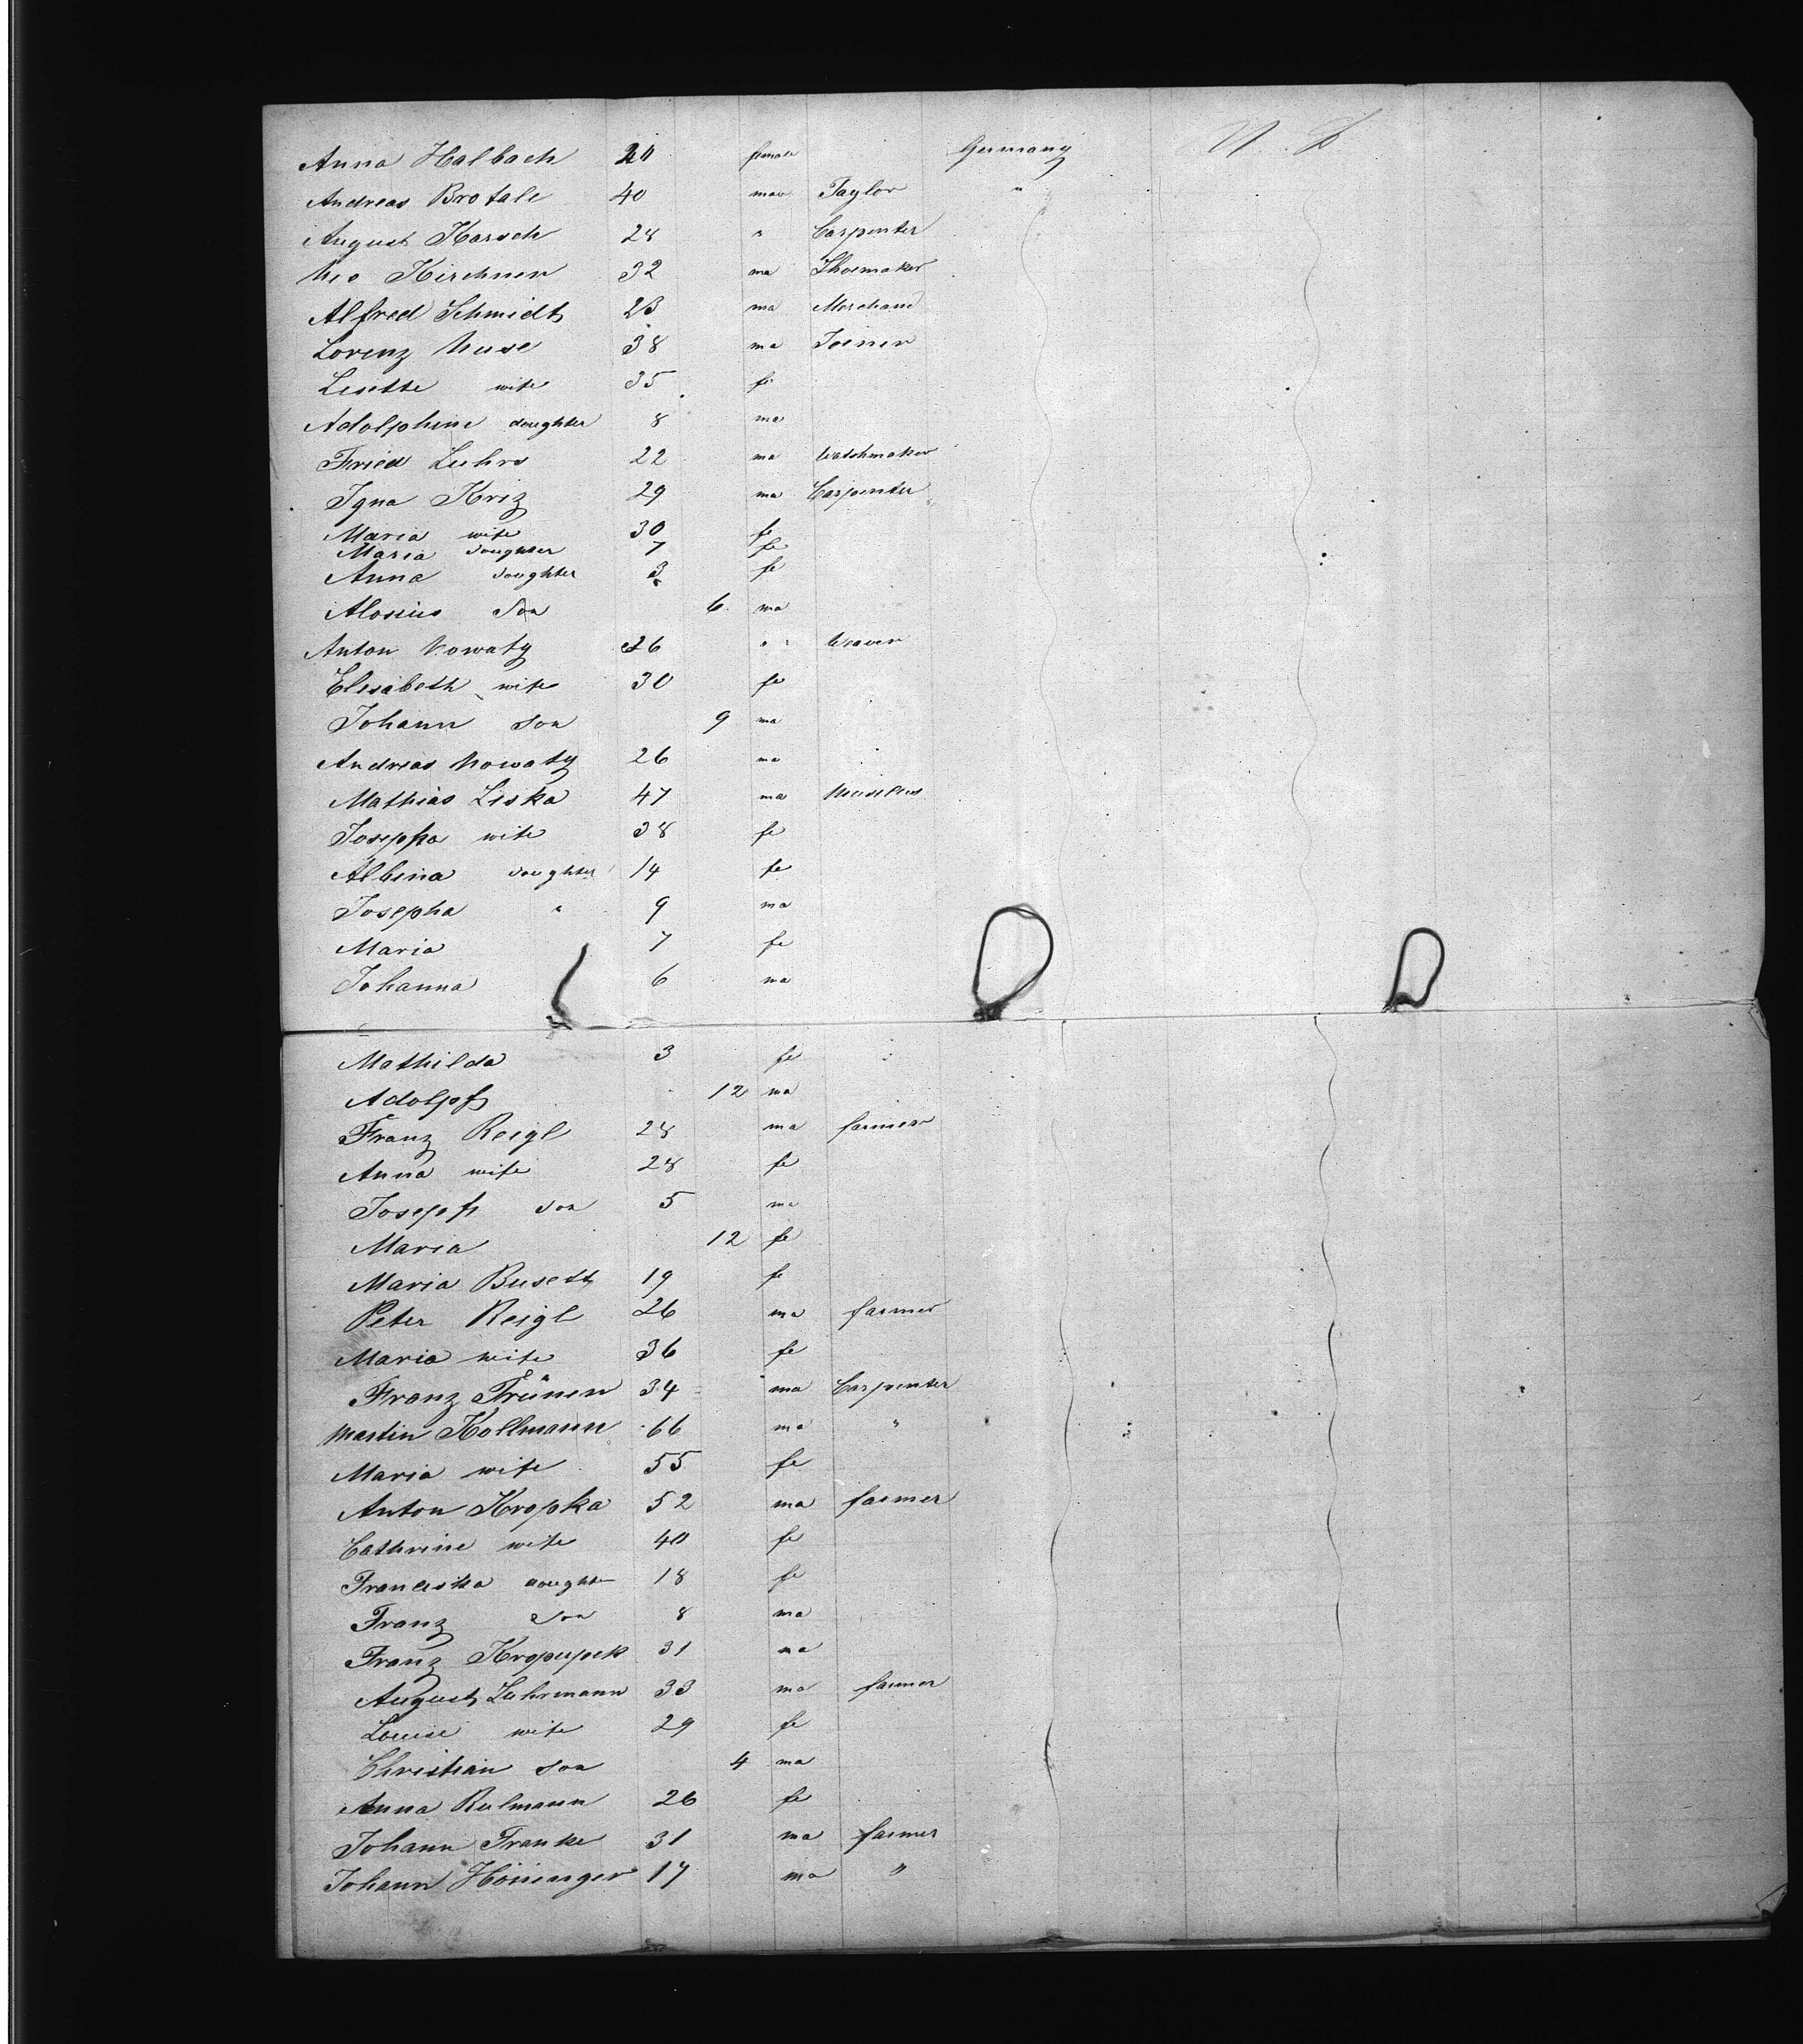 Anna Halbach 20 female Germany U. S
Andreas Brotale 40 mao Taylor "
August Karsch 28 " Carpenter
Kirchner 32 ma Shoemaker
Alfred Schmidt 23 ma Merchand
Lorenz Muse 38 ma Joiner
Lisette wife 35 fe
Adolphine doughter 8 ma
Fried Luhrs 22 ma Watchmaker
Igna Kriz 29 ma Carpenter
Maria wife 30 fe
Maria doughter 7 fe
Anna doughter 3 fe
Alosius Son 6 ma
Anton Nowaty 26 " Weaver
Elisabeth wife 30 fe
Johann son 9 ma
Andreas Nowaty 26 ma
Mathias Liska 47 ma
Josepha wife 38 fe
Albina doughter 14 fe
Josepha " 9 ma
Maria 7 fe
Johanna 6 ma
Mathilda 3 fe
Adolpf 12 ma
Franz Reigl 28 ma farmer
Anna wife 28 fe
Josepf son 5 ma
Maria 12 fe
Maria Busett 19 fe
Peter Reigl 26 ma farmer
Maria wife 36 fe
Franz Trünen 34 ma Carpenter
Martin Kollmann 66 ma "
Maria wife 55 fe
Anton Kropka 52 ma farmer
Cathrine wife 40 fe
Franciska doughter 18 fe
Franz Son 8 ma
Franz Kropupek 31 ma
August Luhrmann 33 ma farmer
Louise wife 29 fe
Christian son 4 ma
Anna Rulmann 26 fe
Johann Franke 31 ma farmer
Johann Höninger 17 ma "